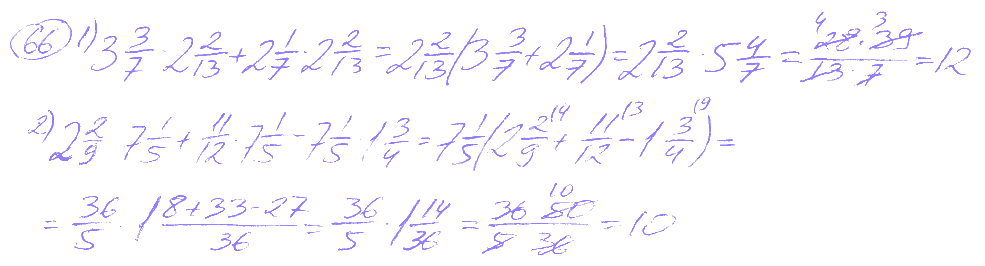 66 1) 3 3/7 · 2 2/13 + 2 1/7 · 2 2/13 = 2 2/13 (3 3/7 + 2 1/7) = 2 2/13 · 5 4/7 = 28 · 39 / 13 · 7 = 12
2) 2 2/9 7 1/5 + 11/12 · 7 1/5 - 7 1/5 · 1 3/4 = 7 1/5 (2 2/9 + 11/12 - 1 3/4) =
= 36/5 · 1 8+33-27/36 = 36/5 · 1 14/36 = 36 50/5 36 = 10